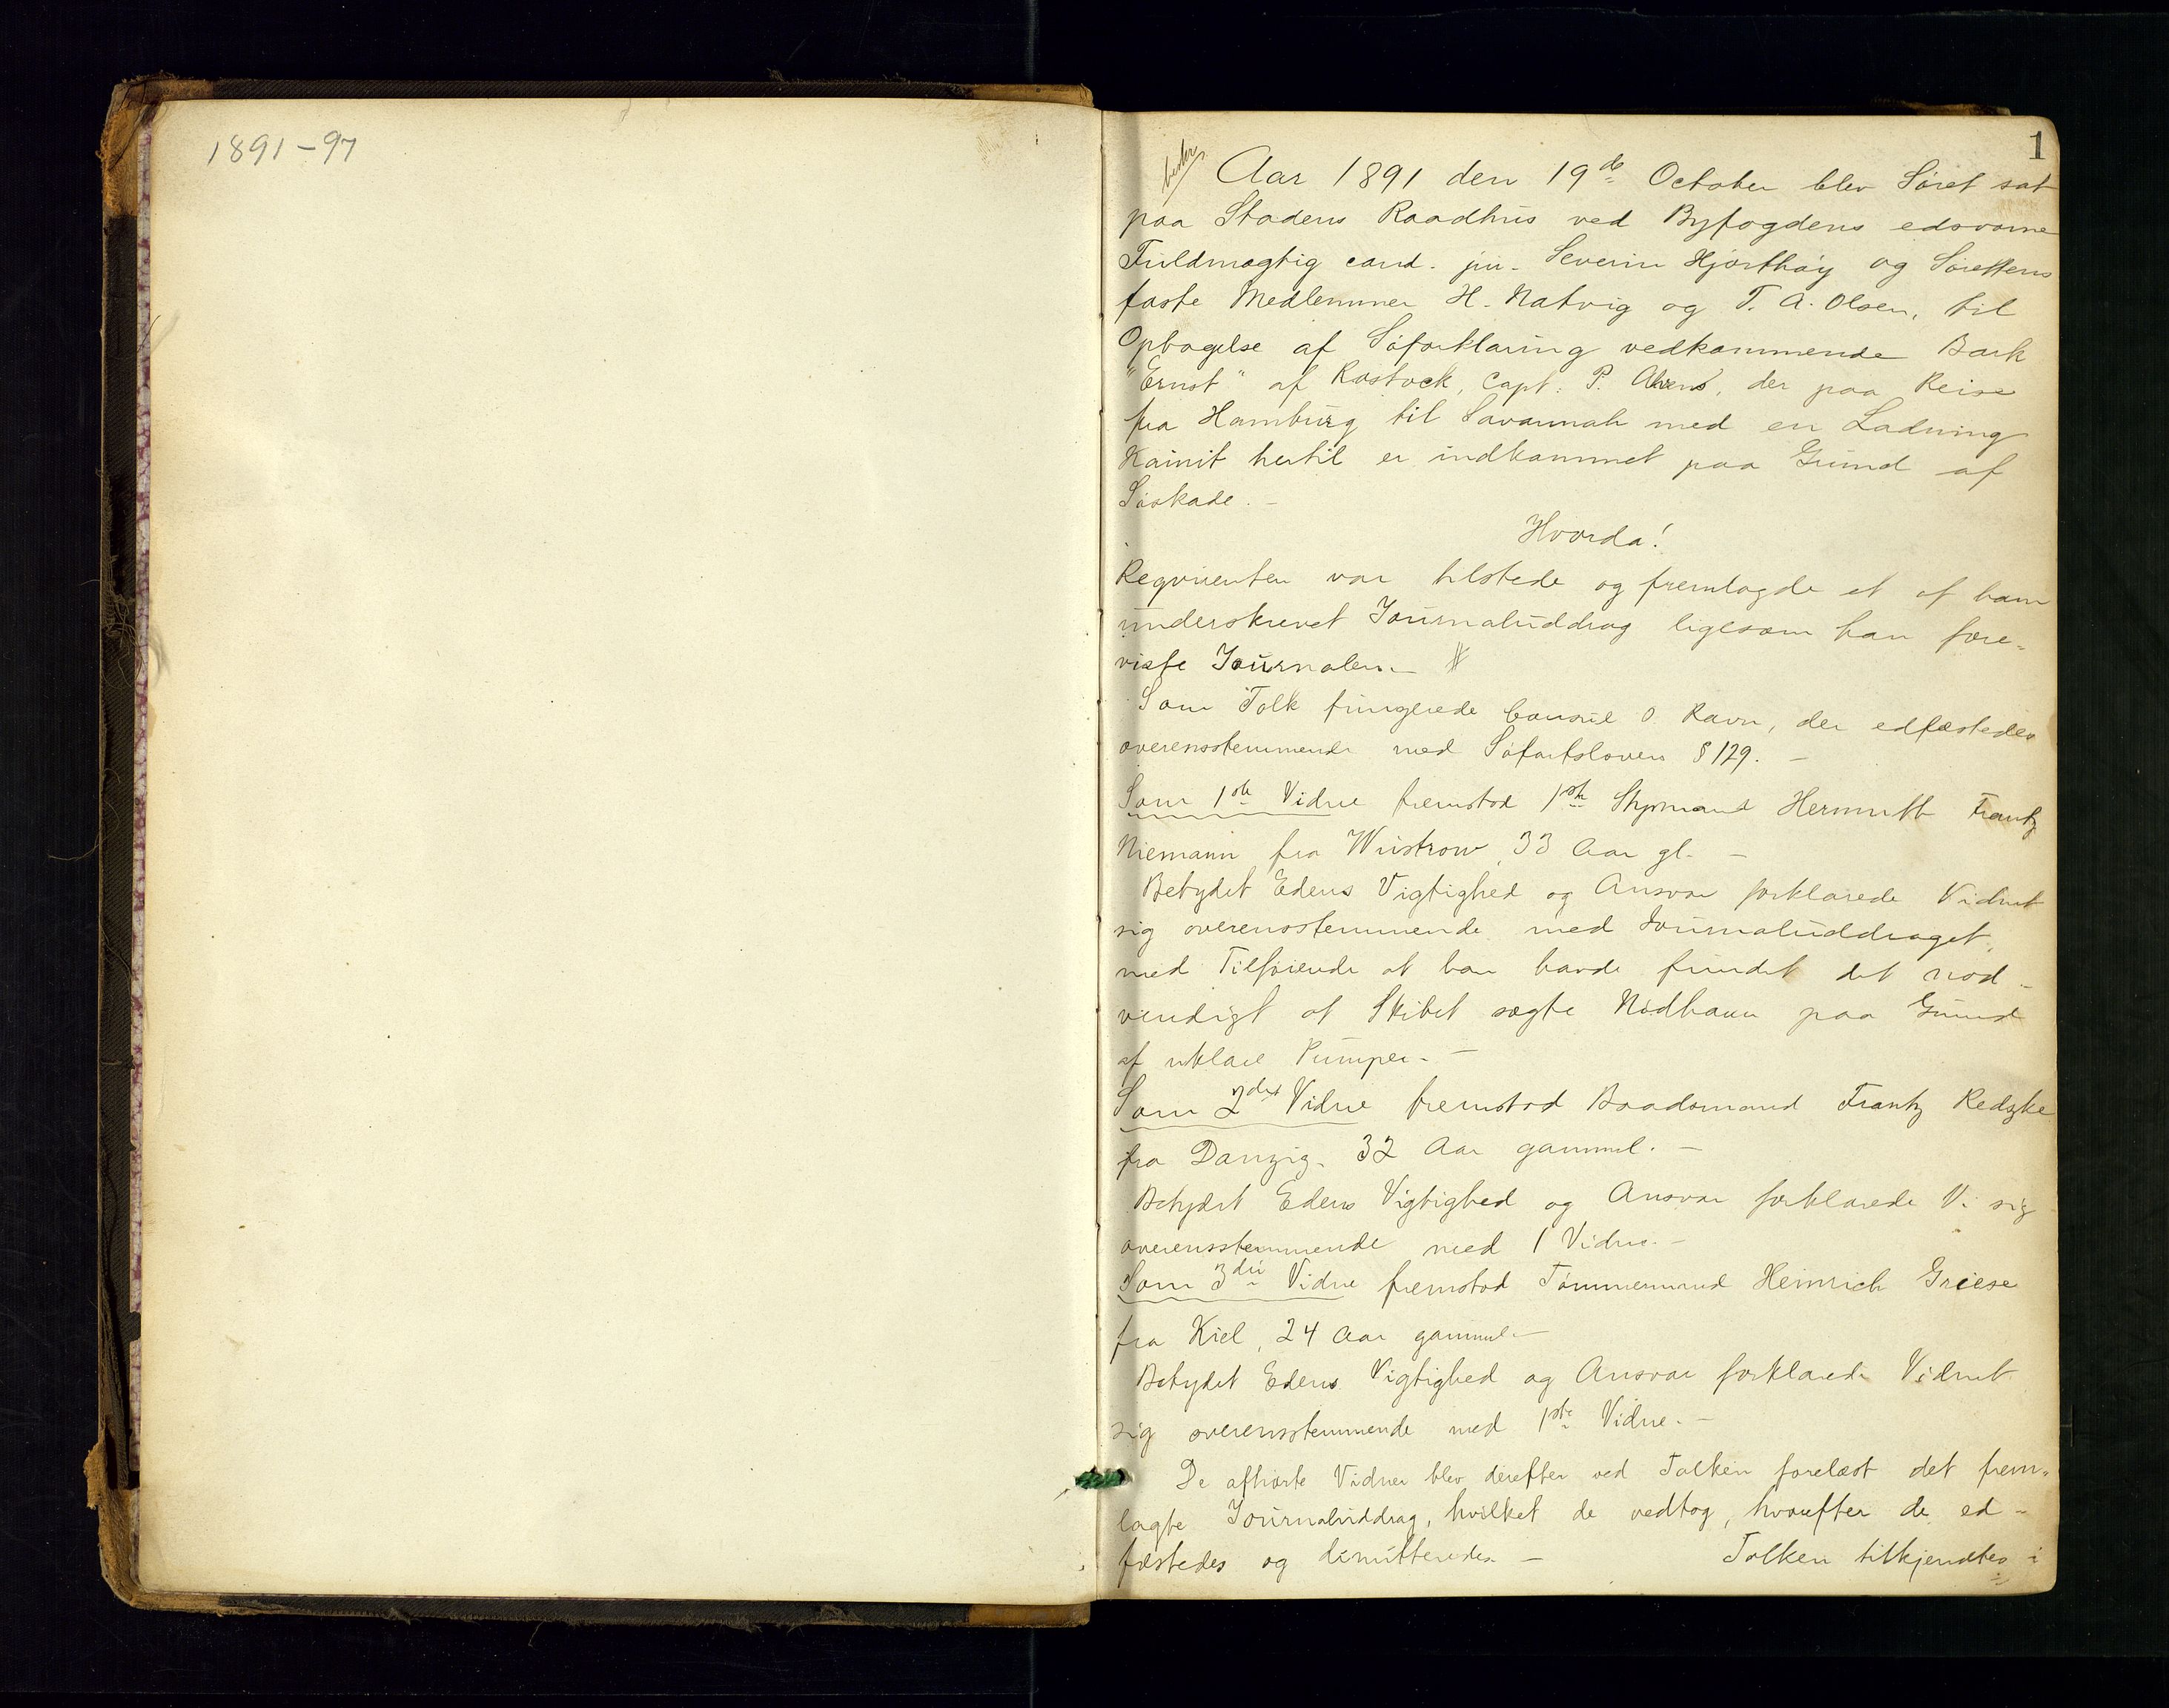 1891-97
1
Aar 1891 den 19de October blev Søret sat
paa Stadens Raadhus ved Byfogdens edsvorne
Fuldmægtig cand. jur. Severin Hjorthøy og Sørettens
faste Medlemmer H. Natvig og T. A. Olsen, til
Optagelse af Søforklaring vedkommende Bark
"Ernst" af Rostock, Capt: P. Ahrens, der paa Reise
fra Hamburg til Savannah med en Ladning
Kainit hertil er indkommet paa Grund af
Søskade. -
Hvorda!
Reqvirenten var tilstede og fremlagde et af ham
underskrevet Journaluddrag ligesom han fore-
viste Journalen. -
Som Tolk fungerede Consul O. Ravn, der edfæstedes
overensstemmende med Søfartsloven § 129. -
Som 1ste Vidne fremstod 1ste Styrmand Hermuth Frantz
Niemann fra Wustrow, 33 Aar gl. -
Betydet Edens Vigtighed og Ansvar forklarede Vidnet
sig overensstemmende med Journaluddraget,
med Tilføiende at han havde fundet det nød-
vendigt at Skibet søgte Nødhavn paa Grund
af uklare Pumper. -
Som 2det Vidne fremstod Baadsmand Frantz Redzke
fra Danzig, 32 Aar gammel. -
Betydet Edens Vigtighed og Ansvar forklarede V. sig
overensstemmende med 1 Vidne. -
Som 3die Vidne fremstod Tømmermand Heinrich Griese
fra Kiel, 24 Aar gammel. -
Betydet Edens Vigtighed og Ansvar forklarede Vidnet
sig overensstemmende med 1ste Vidne. -
De afhørte Vidner blev derefter ved Tolken forelæst det frem-
lagte Journaluddrag, hvilket de vedtog, hvorefter de ed-
fæstedes og dimitteredes. - Tolken tilkjendtes i